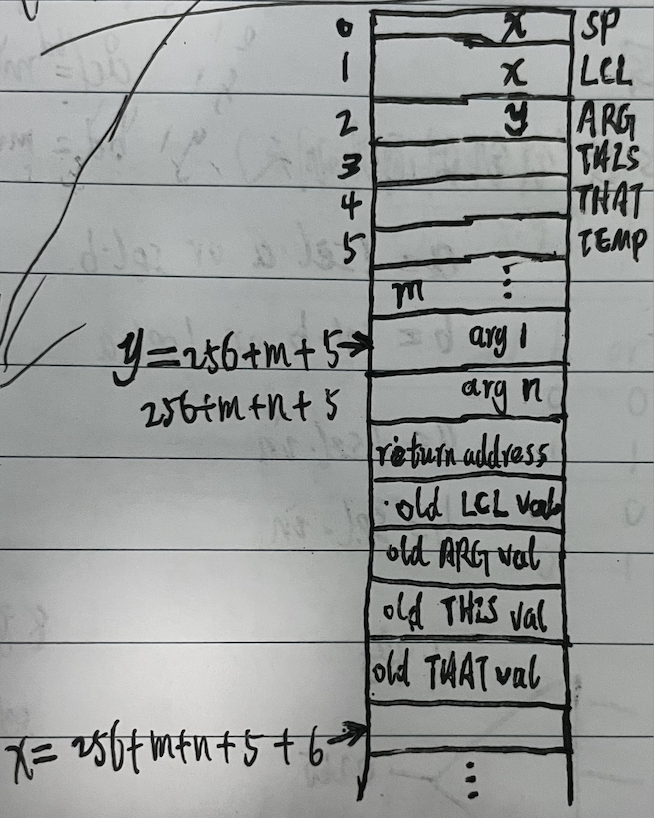 0 x SP
1 x LCL
2 y ARG
3 THIS
4 THAT
5 TEMP
m ⋮
y=256+m+5→ arg 1
256+m+n+5 arg n
return address
old LCL val
old ARG val
old THIS val
old THAT val
x= 256+m+n+5+6 →
⋮